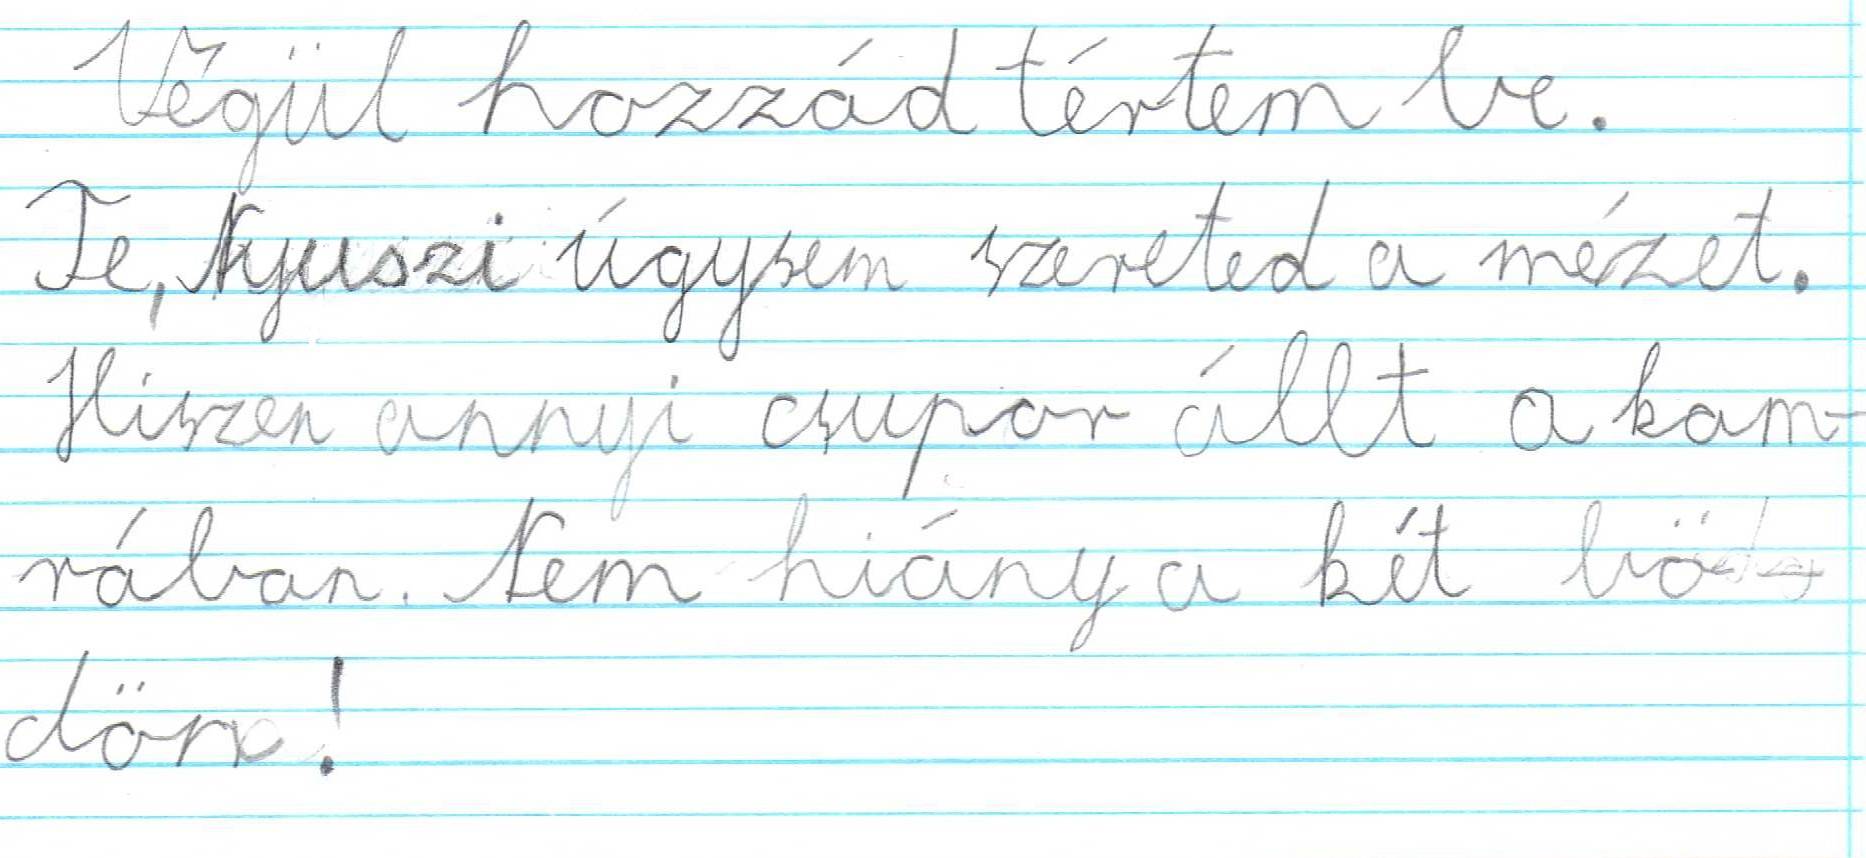 Végül hozzád tértem be.
Te, Nyuszi úgysem szereted a mézet.
Hiszen annyi csupor állt a kam-
rában. Nem hiány a két bö-
dön!